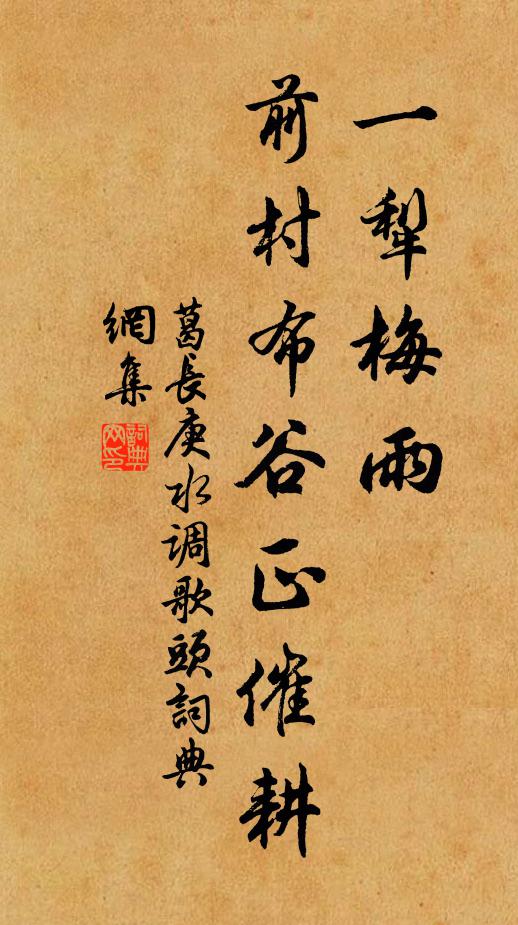 一犁梅雨
前村布谷正催耕
葛長庚水调歌頭詞典
網集
詞典
网印